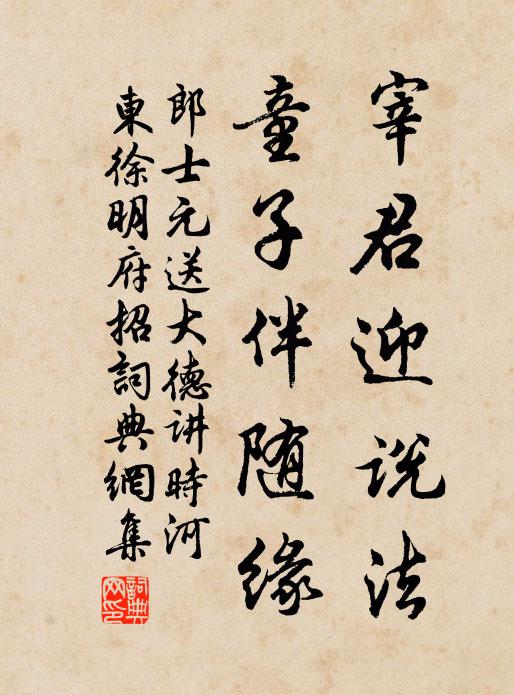 宰君迎说法
童子伴随缘
郎士元送大德讲時河
東徐明府招詞典網集
詞典网印